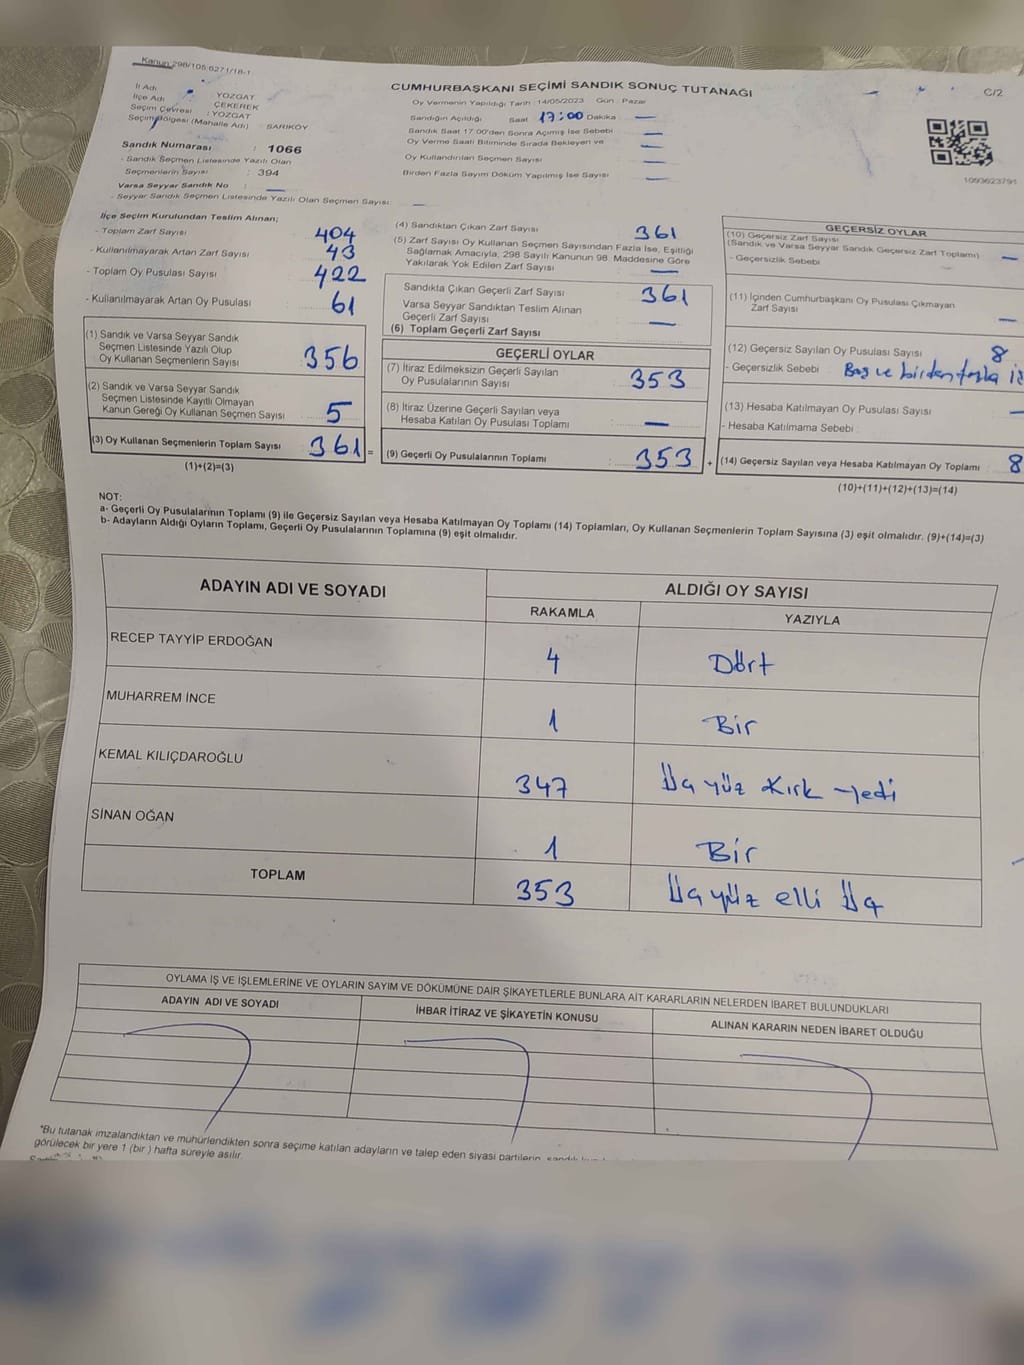 Kanun 298/105:6271/18-1
CUMHURBAŞKANI SEÇİMİ SANDIK SONUÇ TUTANAĞI
C/2
İl Adı : YOZGAT
İlçe Adı : ÇEKEREK
Seçim Çevresi : YOZGAT
Seçim Bölgesi (Mahalle Adı) : SARIKÖY
Sandık Numarası : 1066
- Sandık Seçmen Listesinde Yazılı Olan
Seçmenlerin Sayısı : 394
Varsa Seyyar Sandık No : —
- Seyyar Sandık Seçmen Listesinde Yazılı Olan Seçmen Sayısı: —
Oy Vermenin Yapıldığı Tarih : 14/05/2023 Gün : Pazar
Sandığın Açıldığı Saat 17:00 Dakika —
Sandık Saat 17:00'den Sonra Açımış İse Sebebi —
Oy Verme Saati Bitiminde Sırada Bekleyen ve —
Oy Kullandırılan Seçmen Sayısı —
Birden Fazla Sayım Döküm Yapılmış İse Sayısı —
1093623791
İlçe Seçim Kurulundan Teslim Alınan;
- Toplam Zarf Sayısı 404
- Kullanılmayarak Artan Zarf Sayısı 43
- Toplam Oy Pusulası Sayısı 422
- Kullanılmayarak Artan Oy Pusulası 61
(1) Sandık ve Varsa Seyyar Sandık
Seçmen Listesinde Yazılı Olup
Oy Kullanan Seçmenlerin Sayısı 356
(2) Sandık ve Varsa Seyyar Sandık
Seçmen Listesinde Kayıtlı Olmayan
Kanun Gereği Oy Kullanan Seçmen Sayısı 5
(3) Oy Kullanan Seçmenlerin Toplam Sayısı 361 =
(1)+(2)=(3)
(4) Sandıktan Çıkan Zarf Sayısı 361
(5) Zarf Sayısı Oy Kullanan Seçmen Sayısından Fazla İse, Eşitliği
Sağlamak Amacıyla, 298 Sayılı Kanunun 98. Maddesine Göre
Yakılarak Yok Edilen Zarf Sayısı —
Sandıkta Çıkan Geçerli Zarf Sayısı 361
Varsa Seyyar Sandıktan Teslim Alınan
Geçerli Zarf Sayısı —
(6) Toplam Geçerli Zarf Sayısı
GEÇERLİ OYLAR
(7) İtiraz Edilmeksizin Geçerli Sayılan
Oy Pusulalarının Sayısı 353
(8) İtiraz Üzerine Geçerli Sayılan veya
Hesaba Katılan Oy Pusulası Toplamı —
(9) Geçerli Oy Pusulalarının Toplamı : 353 +
GEÇERSİZ OYLAR
(10) Geçersiz Zarf Sayısı
(Sandık ve Varsa Seyyar Sandık Geçersiz Zarf Toplamı) —
- Geçersizlik Sebebi
(11) İçinden Cumhurbaşkanı Oy Pusulası Çıkmayan
Zarf Sayısı —
(12) Geçersiz Sayılan Oy Pusulası Sayısı 8
- Geçersizlik Sebebi Boş ve birden fazla
(13) Hesaba Katılmayan Oy Pusulası Sayısı —
- Hesaba Katılmama Sebebi :
(14) Geçersiz Sayılan veya Hesaba Katılmayan Oy Toplamı 8
(10)+(11)+(12)+(13)=(14)
NOT:
a- Geçerli Oy Pusulalarının Toplamı (9) ile Geçersiz Sayılan veya Hesaba Katılmayan Oy Toplamı (14) Toplamları, Oy Kullanan Seçmenlerin Toplam Sayısına (3) eşit olmalıdır. (9)+(14)=(3)
b- Adayların Aldığı Oyların Toplamı, Geçerli Oy Pusulalarının Toplamına (9) eşit olmalıdır.
ADAYIN ADI VE SOYADI ALDIĞI OY SAYISI
RAKAMLA YAZIYLA
RECEP TAYYİP ERDOĞAN 4 Dört
MUHARREM İNCE 1 Bir
KEMAL KILIÇDAROĞLU 347 Üç yüz Kırk yedi
SİNAN OĞAN 1 Bir
TOPLAM 353 Üç yüz elli Üç
OYLAMA İŞ VE İŞLEMLERİNE VE OYLARIN SAYIM VE DÖKÜMÜNE DAİR ŞİKAYETLERLE BUNLARA AİT KARARLARIN NELERDEN İBARET BULUNDUKLARI
ADAYIN ADI VE SOYADI İHBAR İTİRAZ VE ŞİKAYETİN KONUSU ALINAN KARARIN NEDEN İBARET OLDUĞU
*Bu tutanak imzalandıktan ve mühürlendikten sonra seçime katılan adayların ve talep eden siyasi partilerin
görülecek bir yere 1 (bir) hafta süreyle asılır.